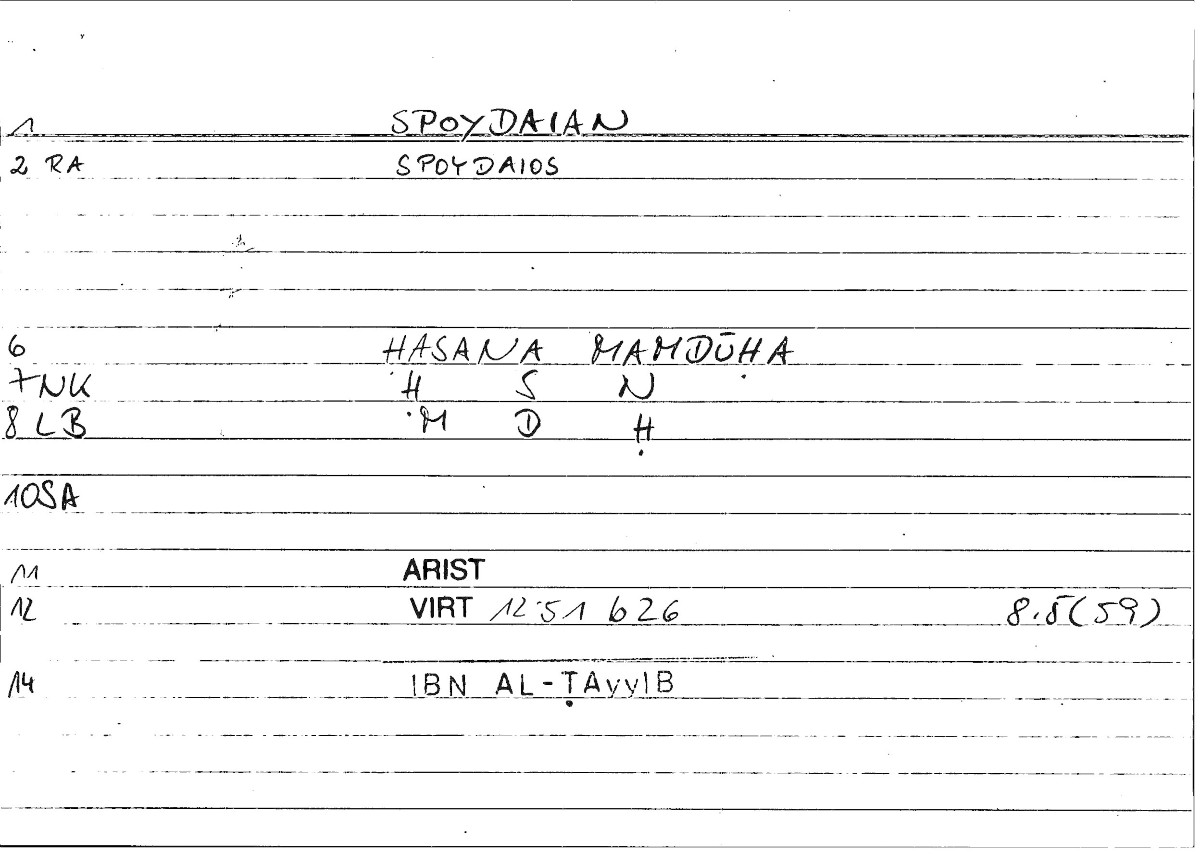 1 SPOYDAIAN
2 RA SPOYDAIOS
6 ḤASANA MAMDŪḤA
7 NK Ḥ S N
8 LB M D Ḥ
10 SA
11 ARIST
12 VIRT 12 51 b 26 8.5(59)
14 IBN AL-ṬAyyIB